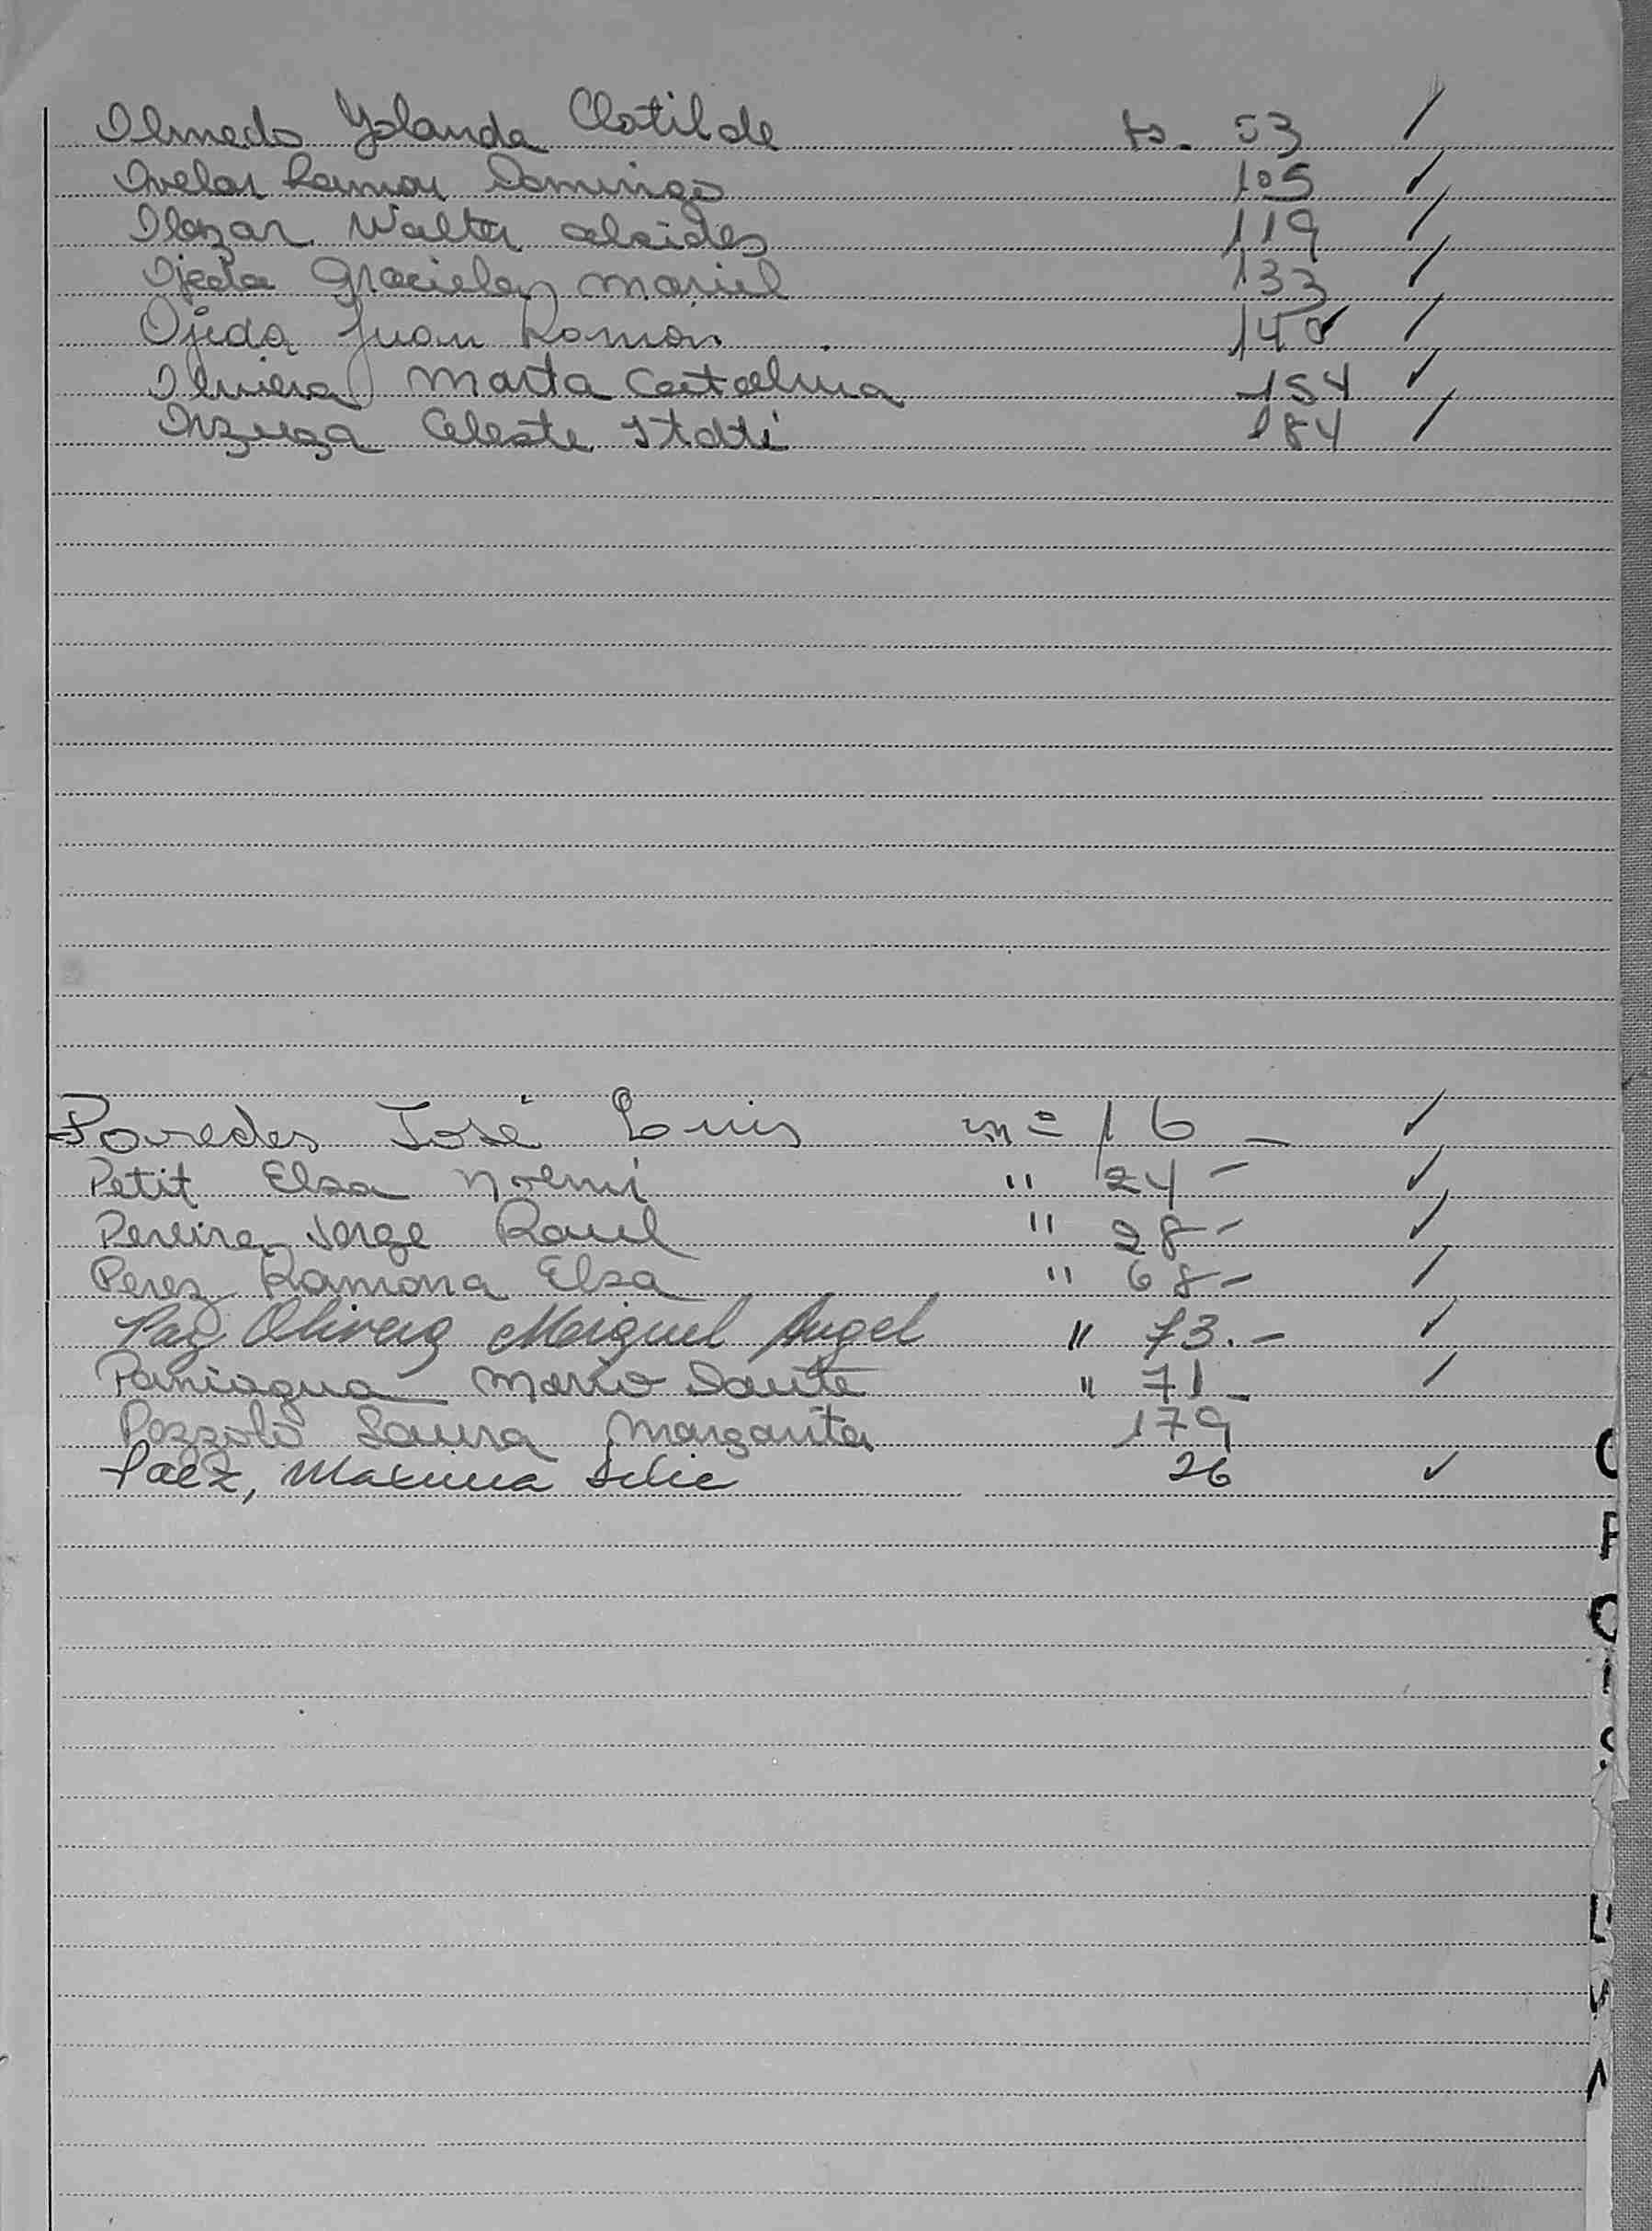 Olmedo Yolanda Clotilde fo. 53 ✓
Ovelar Ramon Domingo 105 ✓
Olazar Walter Alcides 119 ✓
Ojeda Graciela Mariel 133 ✓
Ojeda Juan Ramón. 140 ✓
Olivera Marta Catalina 154 ✓
Orzuza Celeste Itatí 184 ✓
Paredes José Luis nº 16 - ✓
Petit Elsa Noemi " 24 - ✓
Pereira Jorge Raul " 28 - ✓
Perez Ramona Elsa " 68 - ✓
Paz Olivera Miguel Angel " 73. - ✓
Paniagua Mario Dante " 71 - ✓
Pozzolo Laura Margarita 179
Paez, Maxima 26 ✓